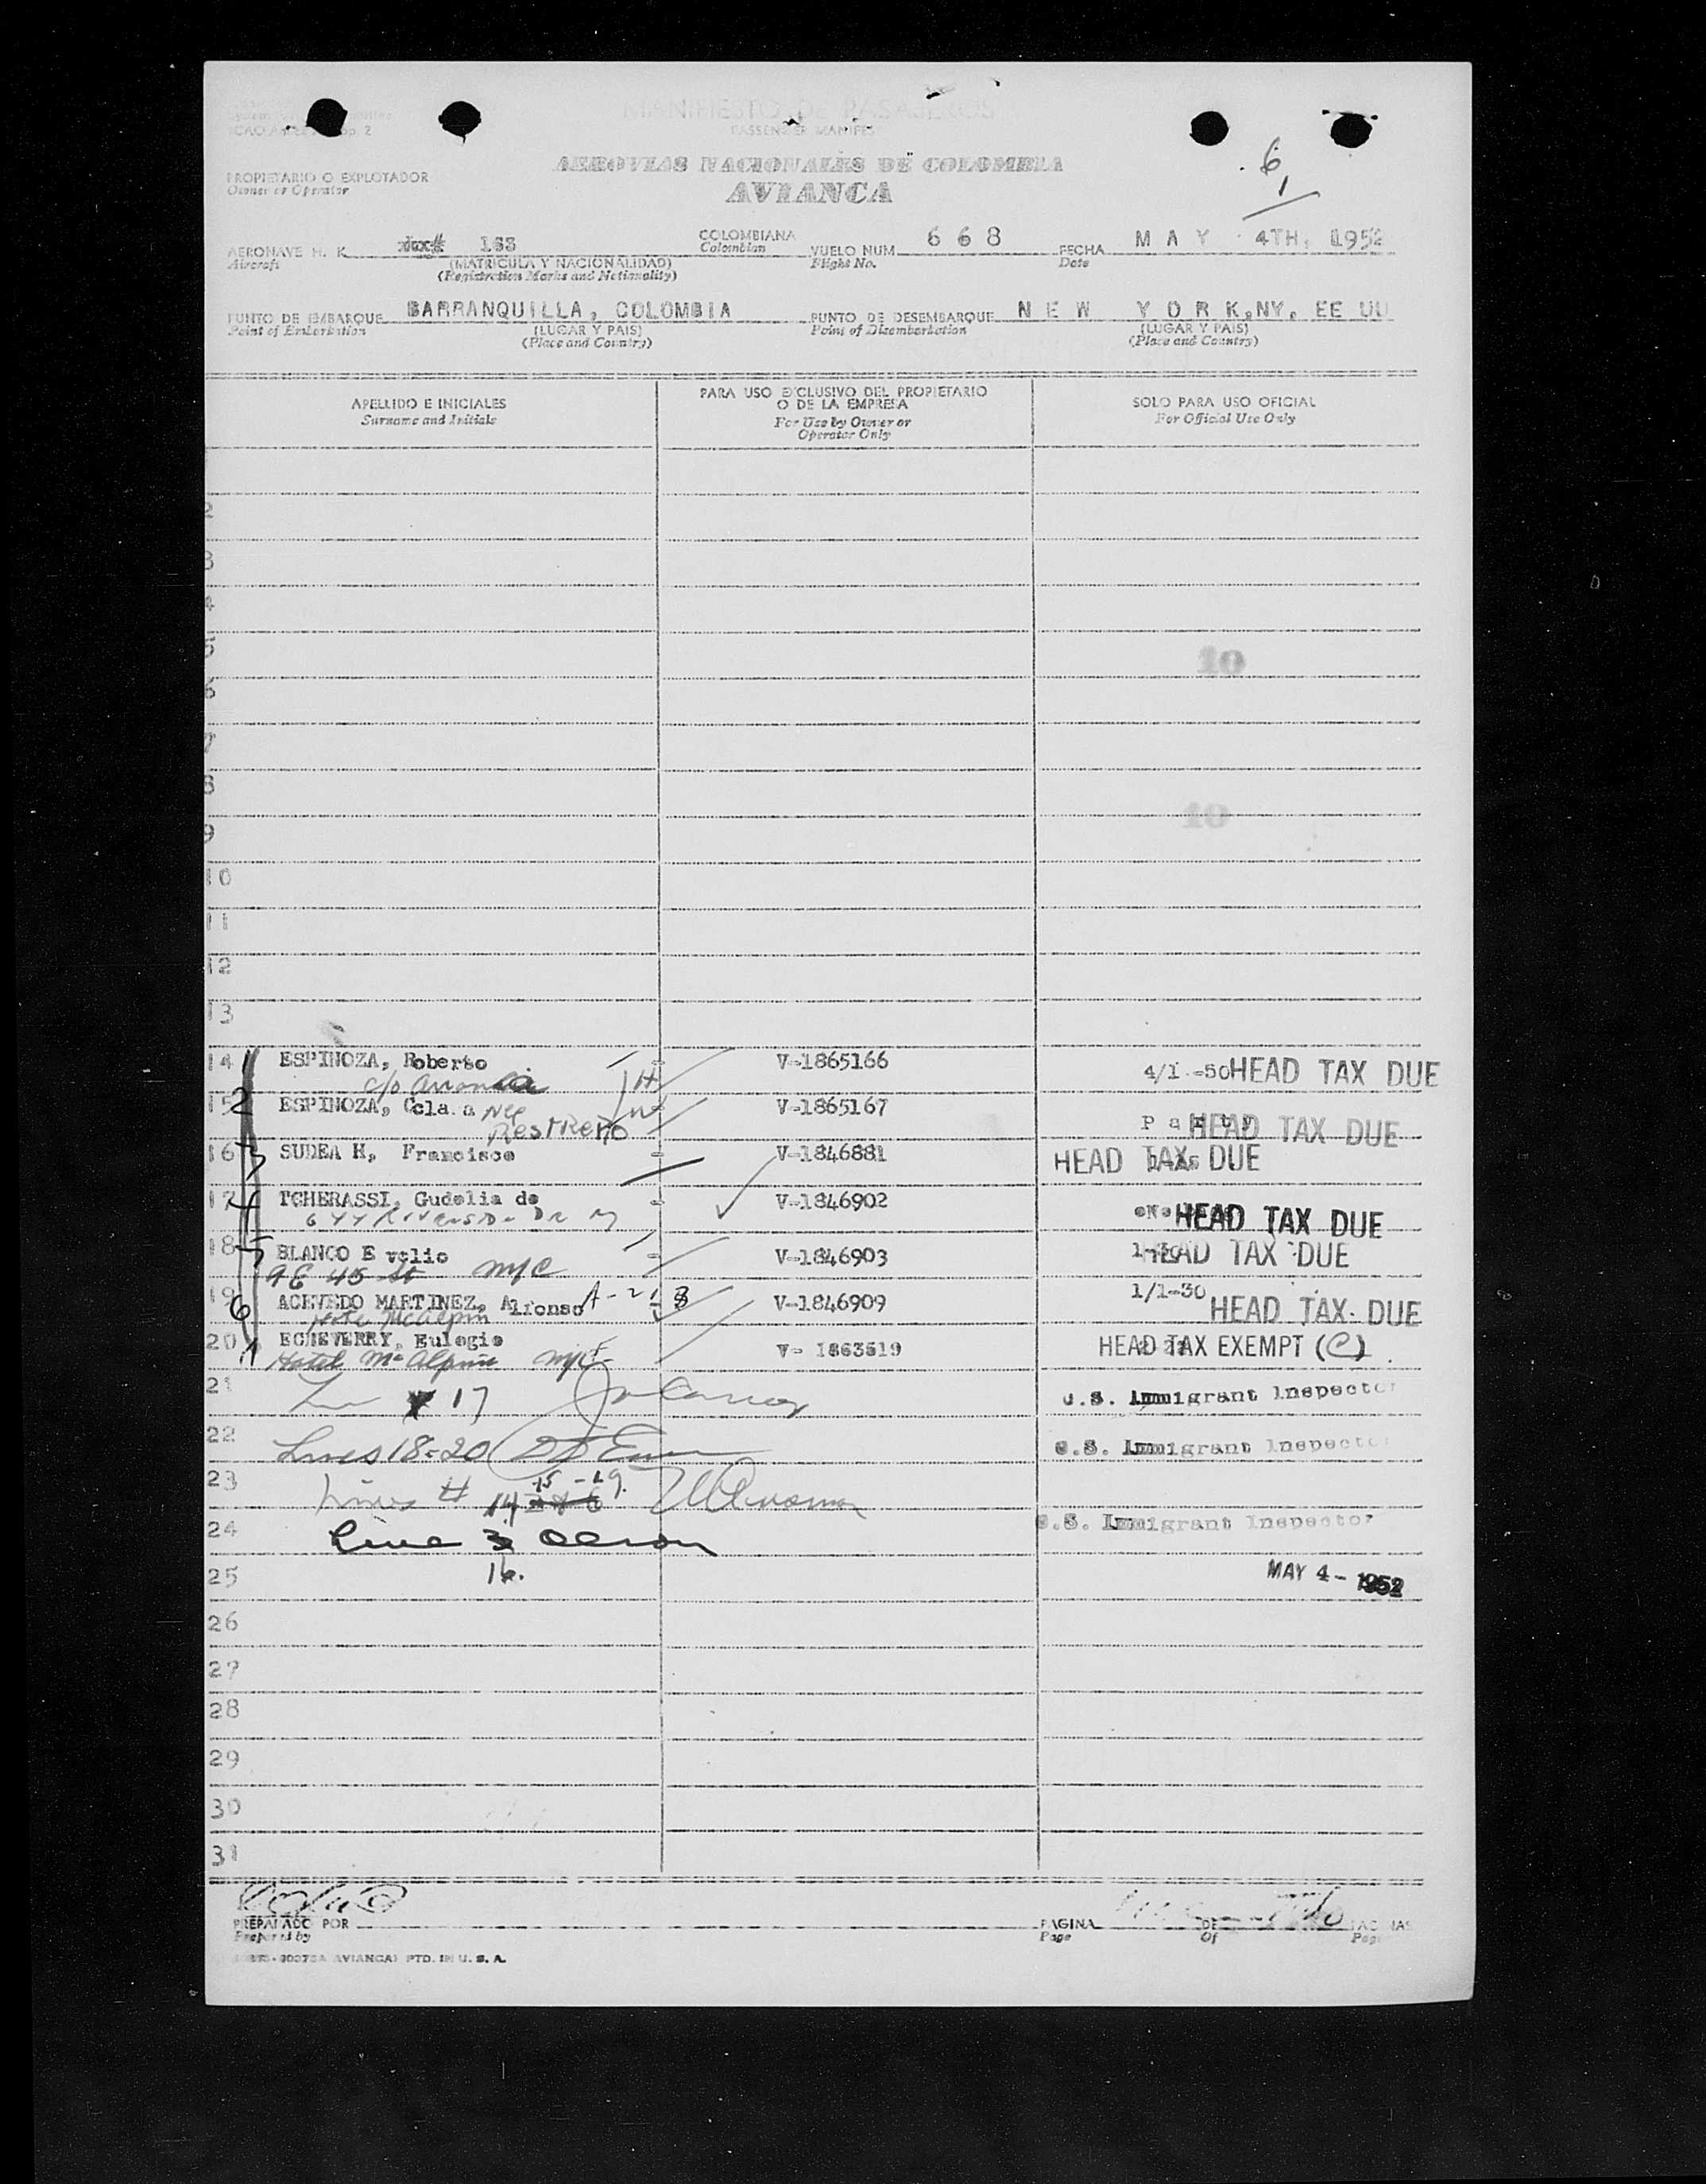 MANIFIESTO DE PASAJEROS
PASSENGER MANIFEST
AEROVIAS NACIONALES DE COLOMBIA
AVIANCA
6
1
PROPIETARIO O EXPLOTADOR
Owner or Operator
AERONAVE H. K. 163 COLOMBIANA VUELO NUM. 668 FECHA MAY 4TH, 1952
Aircraft (MATRICULA Y NACIONALIDAD) Colombian Flight No. Date
(Registration Marks and Nationality)
PUNTO DE EMBARQUE BARRANQUILLA, COLOMBIA PUNTO DE DESEMBARQUE NEW YORK,NY, EE UU
Point of Embarkation (LUGAR Y PAIS) Point of Disembarkation (LUGAR Y PAIS)
(Place and Country) (Place and Country)
APELLIDO E INICIALES PARA USO EXCLUSIVO DEL PROPIETARIO O DE LA EMPRESA SOLO PARA USO OFICIAL
Surname and Initials For Use by Owner or Operator Only For Official Use Only
2
3
4
5
10
6
7
8
9
10
10
11
12
13
14 ESPINOZA, Roberto V-1865166 4/1 -50 HEAD TAX DUE
c/o
15 2 ESPINOZA, nee V-1865167 Party HEAD TAX DUE
Restrepo
16 3 SUDEA H, Francisco V-1846881 HEAD TAX DUE
17 4 TCHERASSI, Gudelia de V-1846902 HEAD TAX DUE
644 Riverside Dr
18 5 BLANCO E velio V-1846903 HEAD TAX DUE
9 E 45 St NYC
19 6 ACEVEDO MARTINEZ, Alfonso V-1846909 1/1-30 HEAD TAX DUE
Hotel McAlpin
20 ECHEVERRY, Eulogio V- 1863519 HEAD TAX EXEMPT (C)
Hotel McAlpin NYC
21 17 U.S. Immigrant Inspector
22 Lines 18-20 U.S. Immigrant Inspector
23 Lines # 14 15 - 19.
24 Line U.S. Immigrant Inspector
25 16. MAY 4 - 1952
26
27
28
29
30
31
PREPARADO POR PAGINA DE PAGINAS
Prepared by Page Of Pages
AVIANCA) PTD. IN U. S. A.